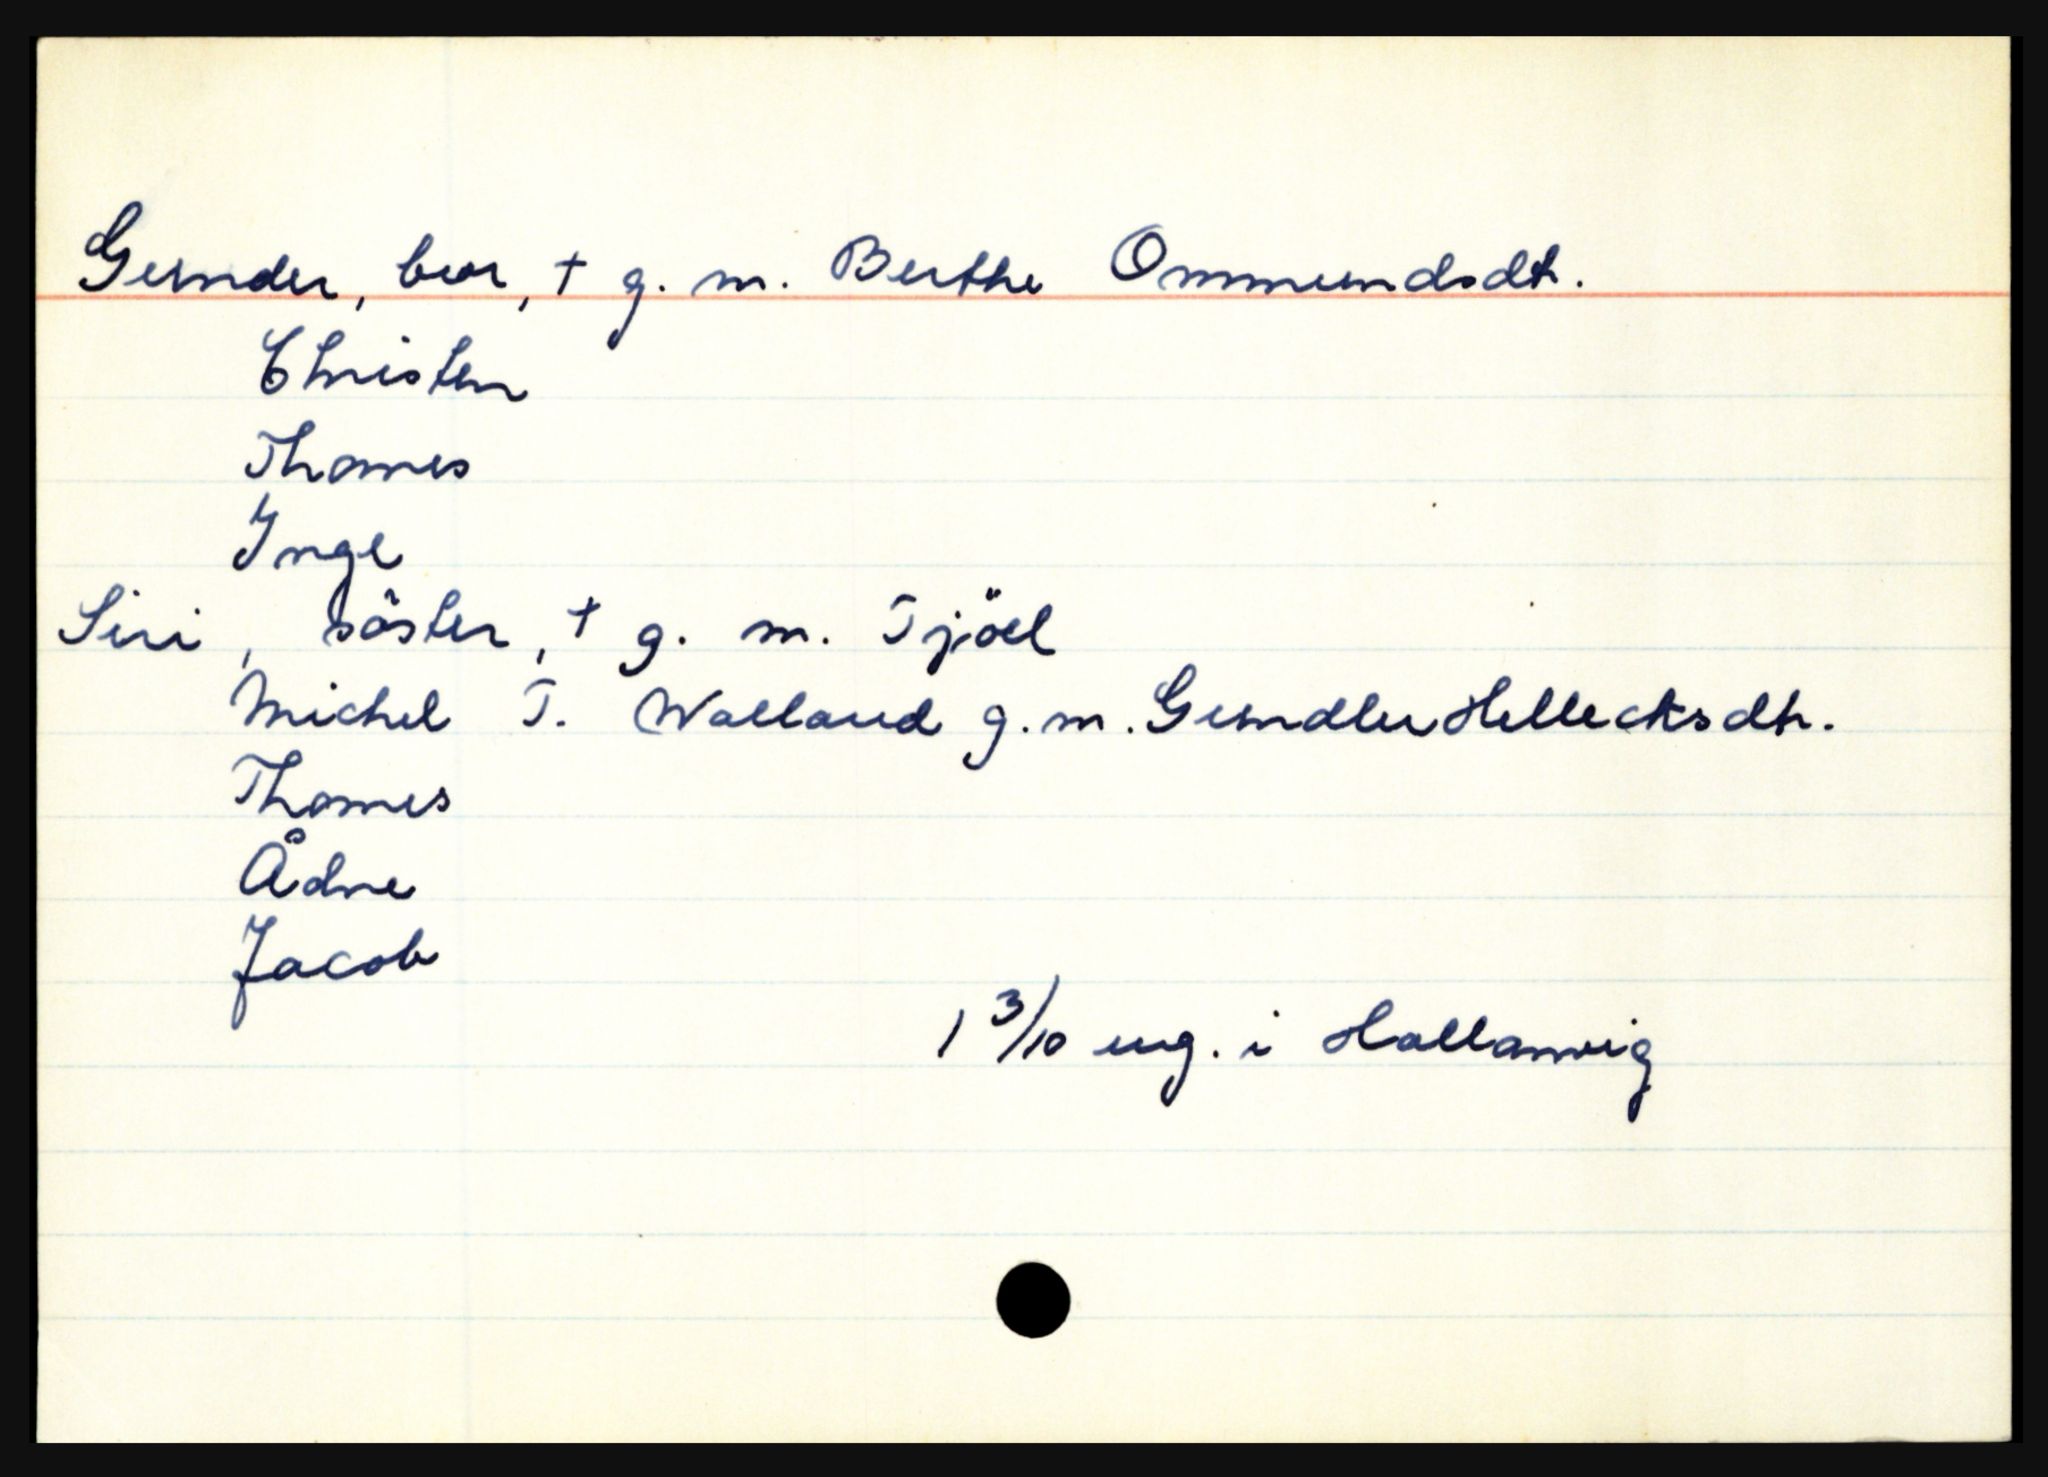 Gunder, bror, † g. m. Berthe Ommundsdtr.
Christen
Thomes
Inge
Siri, söster, † g. m. Tjöel
Michel T. Walland g. m. Gundler Hellecksdtr.
Thomes
Ådne
Jacob
1 3/10 eng. i Hallanvig